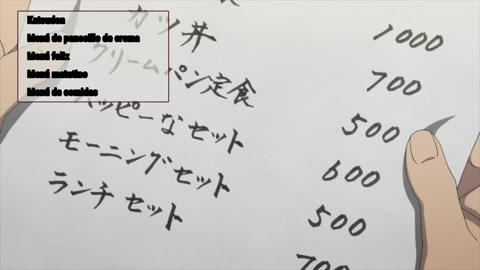 Katsudon
Menú de panecillo de crema
Menú feliz
Menú matutino
Menú de comidas
カツ丼
1000
クリームパン定食
700
ハッピーなセット
500
モーニングセット
600
ランチセット
500
700